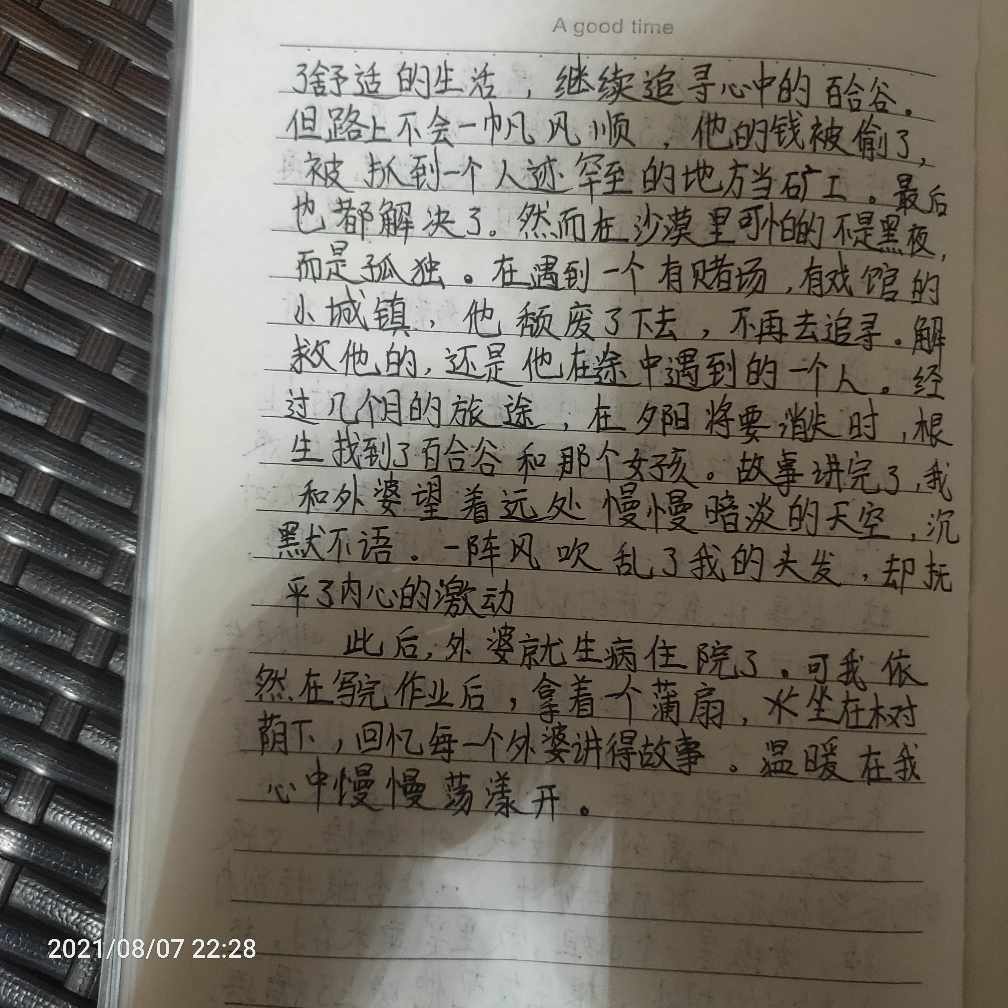 A good time
了舒适的生活，继续追寻心中的百合谷。
但路上不会一帆风顺，他的钱被偷了，
被抓到一个人迹罕至的地方当矿工。最后
也都解决了。然而在沙漠里可怕的不是黑夜，
而是孤独。在遇到一个有赌场，有戏馆的
小城镇，他颓废了下去，不再去追寻。解
救他的，还是他在途中遇到的一个人。经
过几个月的旅途，在夕阳将要消失时，根
生找到了百合谷和那个女孩。故事讲完了，我
和外婆望着远处慢慢暗淡的天空，沉
默不语。一阵风吹乱了我的头发，却抚
平了内心的激动
此后，外婆就生病住院了。可我依
然在写完作业后，拿着一个蒲扇，坐在树
荫下，回忆每一个外婆讲得故事。温暖在我
心中慢慢荡漾开。
2021/08/07 22:28